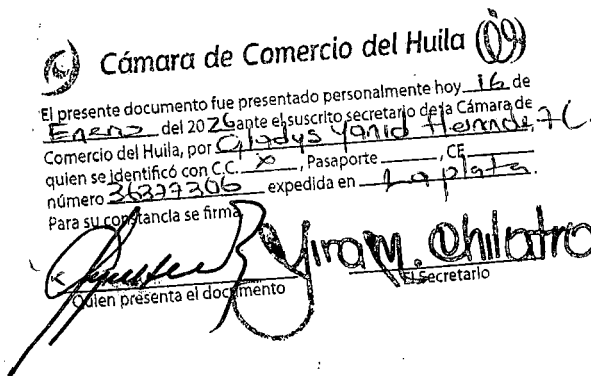 Cámara de Comercio del Huila
El presente documento fue presentado personalmente hoy 16 de
Enero del 2026 ante el suscrito secretario de la Cámara de
Comercio del Huila, por Gladys Yanid C.
quien se identificó con C.C. X, Pasaporte , CE
número 36377306 expedida en La plata.
Para su constancia se firma
Yira M. Chilatra
Quien presenta el documento El Secretario